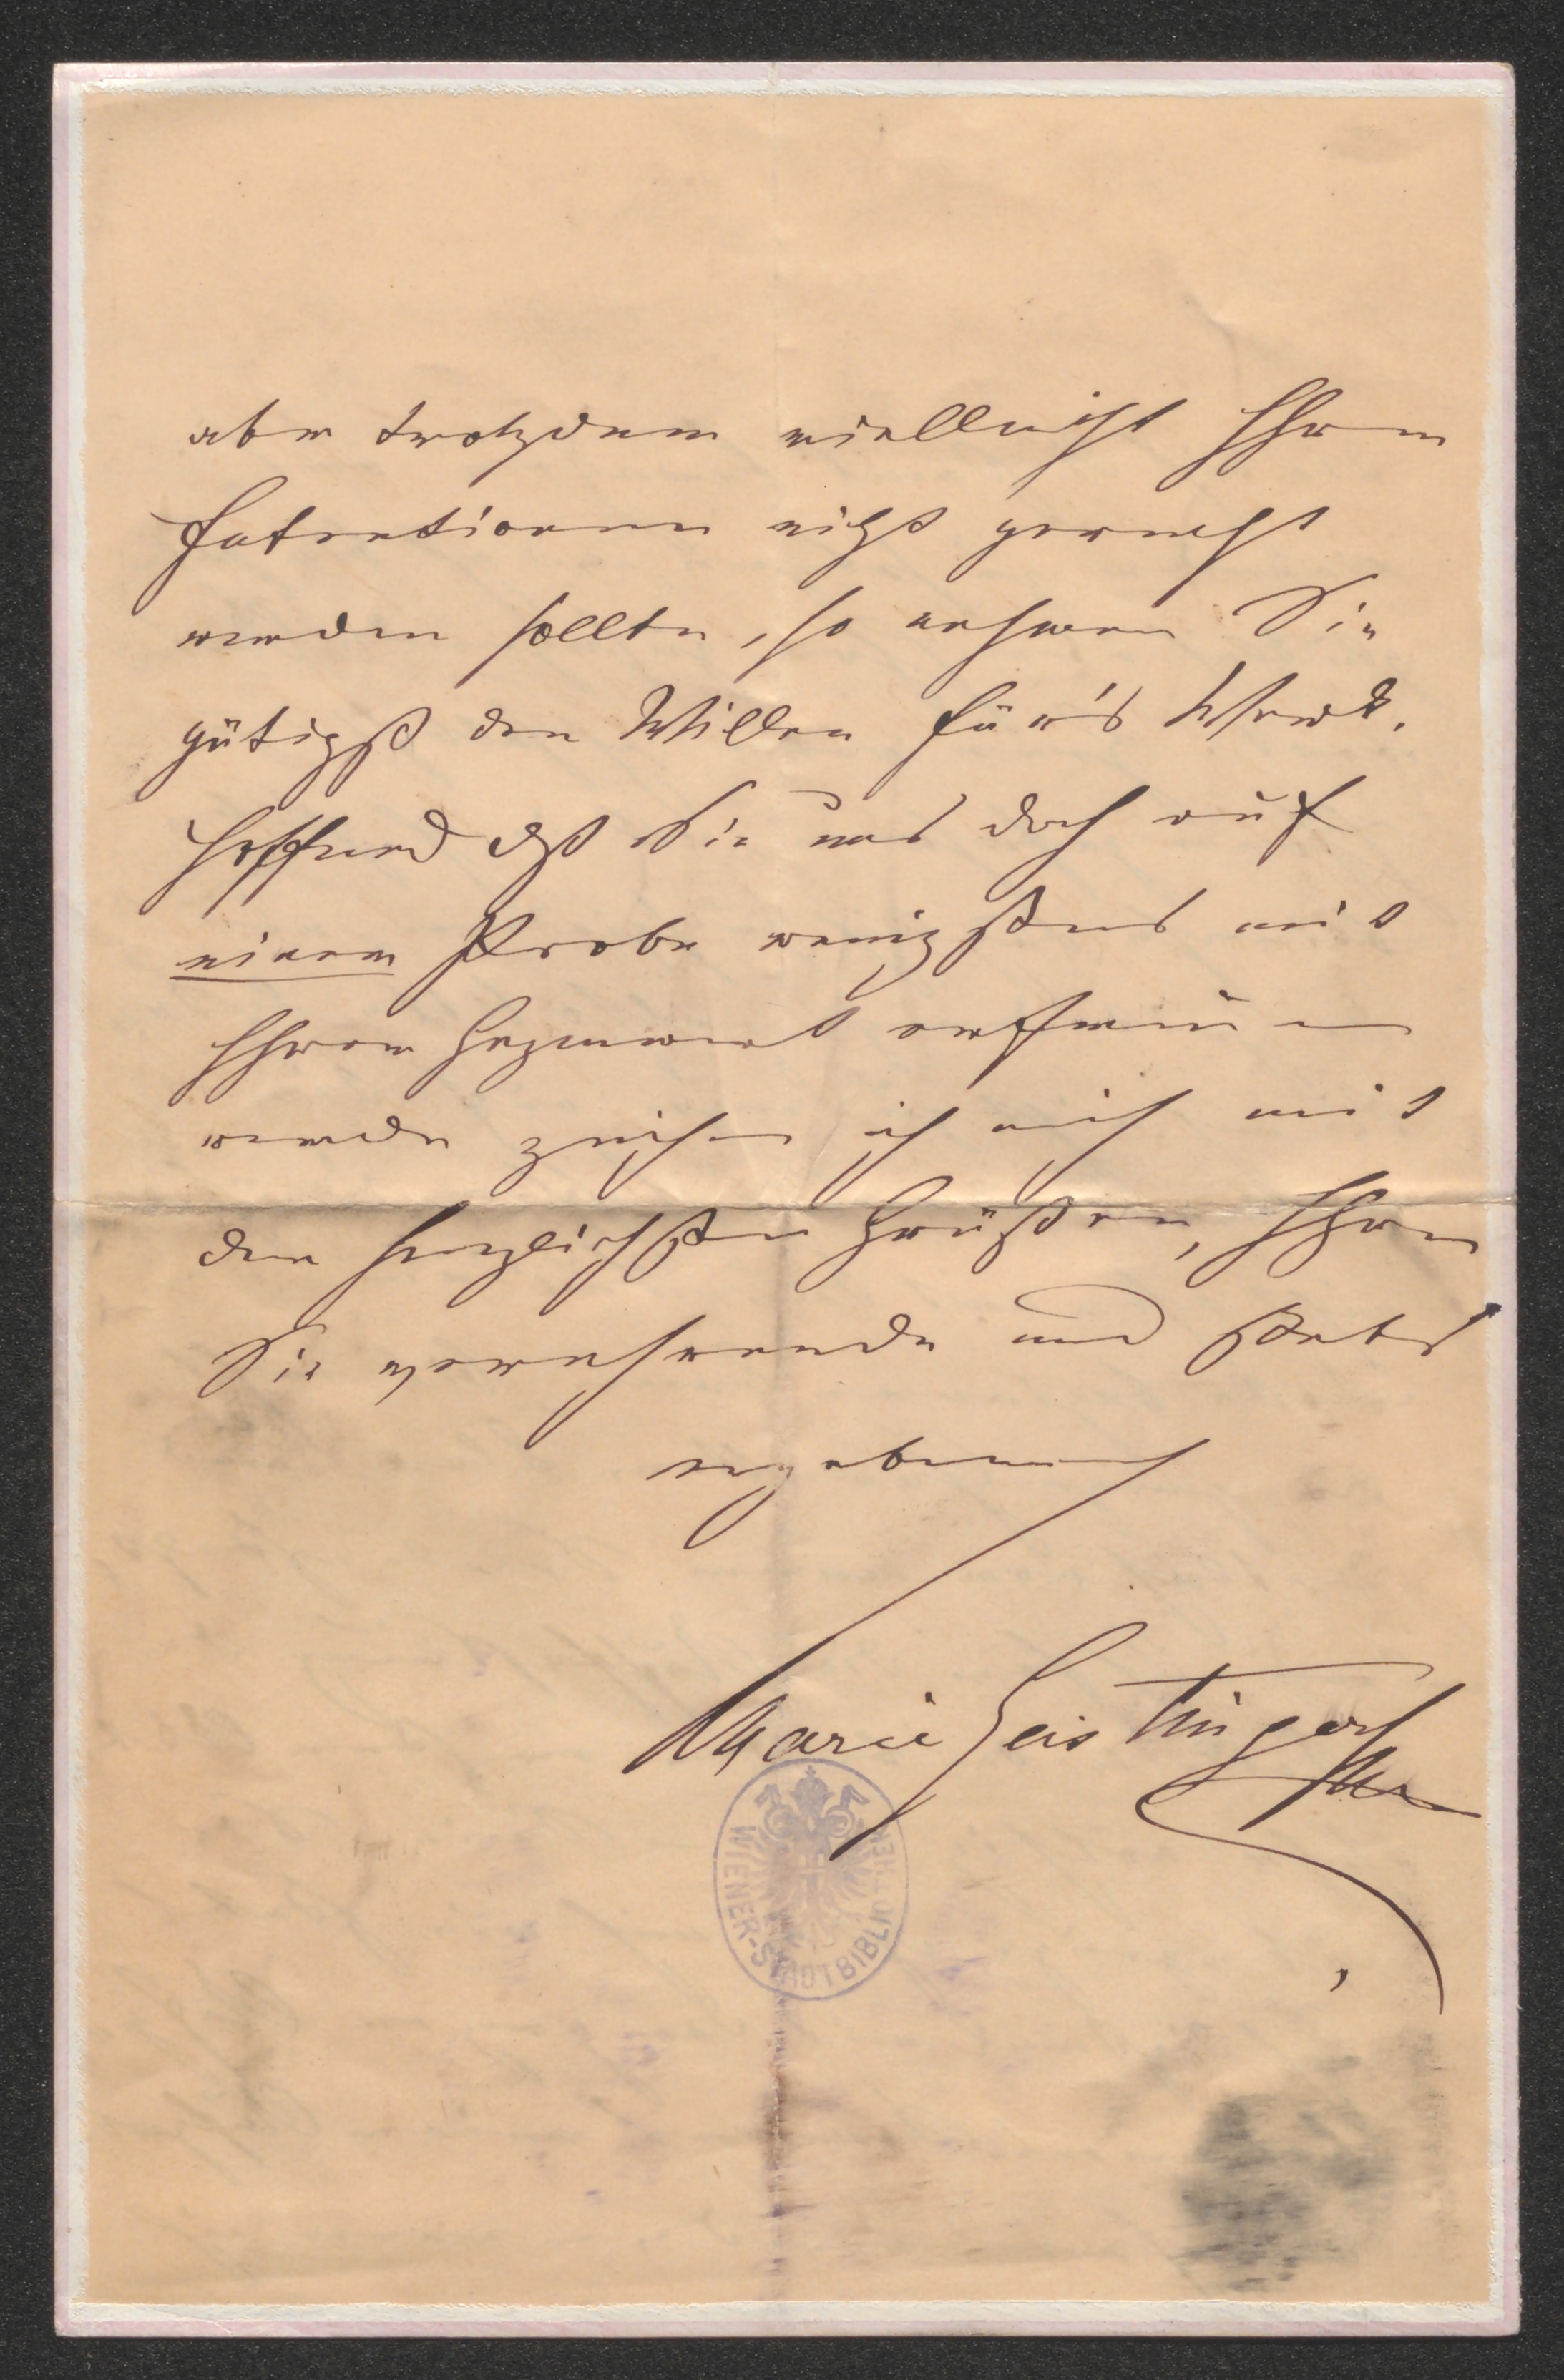 aber trotzdem vielleicht Ihren
Intentionen nicht gerecht
werden sollte, so nehmen Sie
gütigst den Willen für's Werk.
Hoffend daß Sie uns doch auf
einer Probe wenigstens mit
Ihrer Gegenwart erfreuen
werden zeichne ich mich mit
den herzlichsten Grüßen, Ihre
Sie verehrende und stets
ergebene
Marie Geistinger
WIENER-STADTBIBLIOTHEK